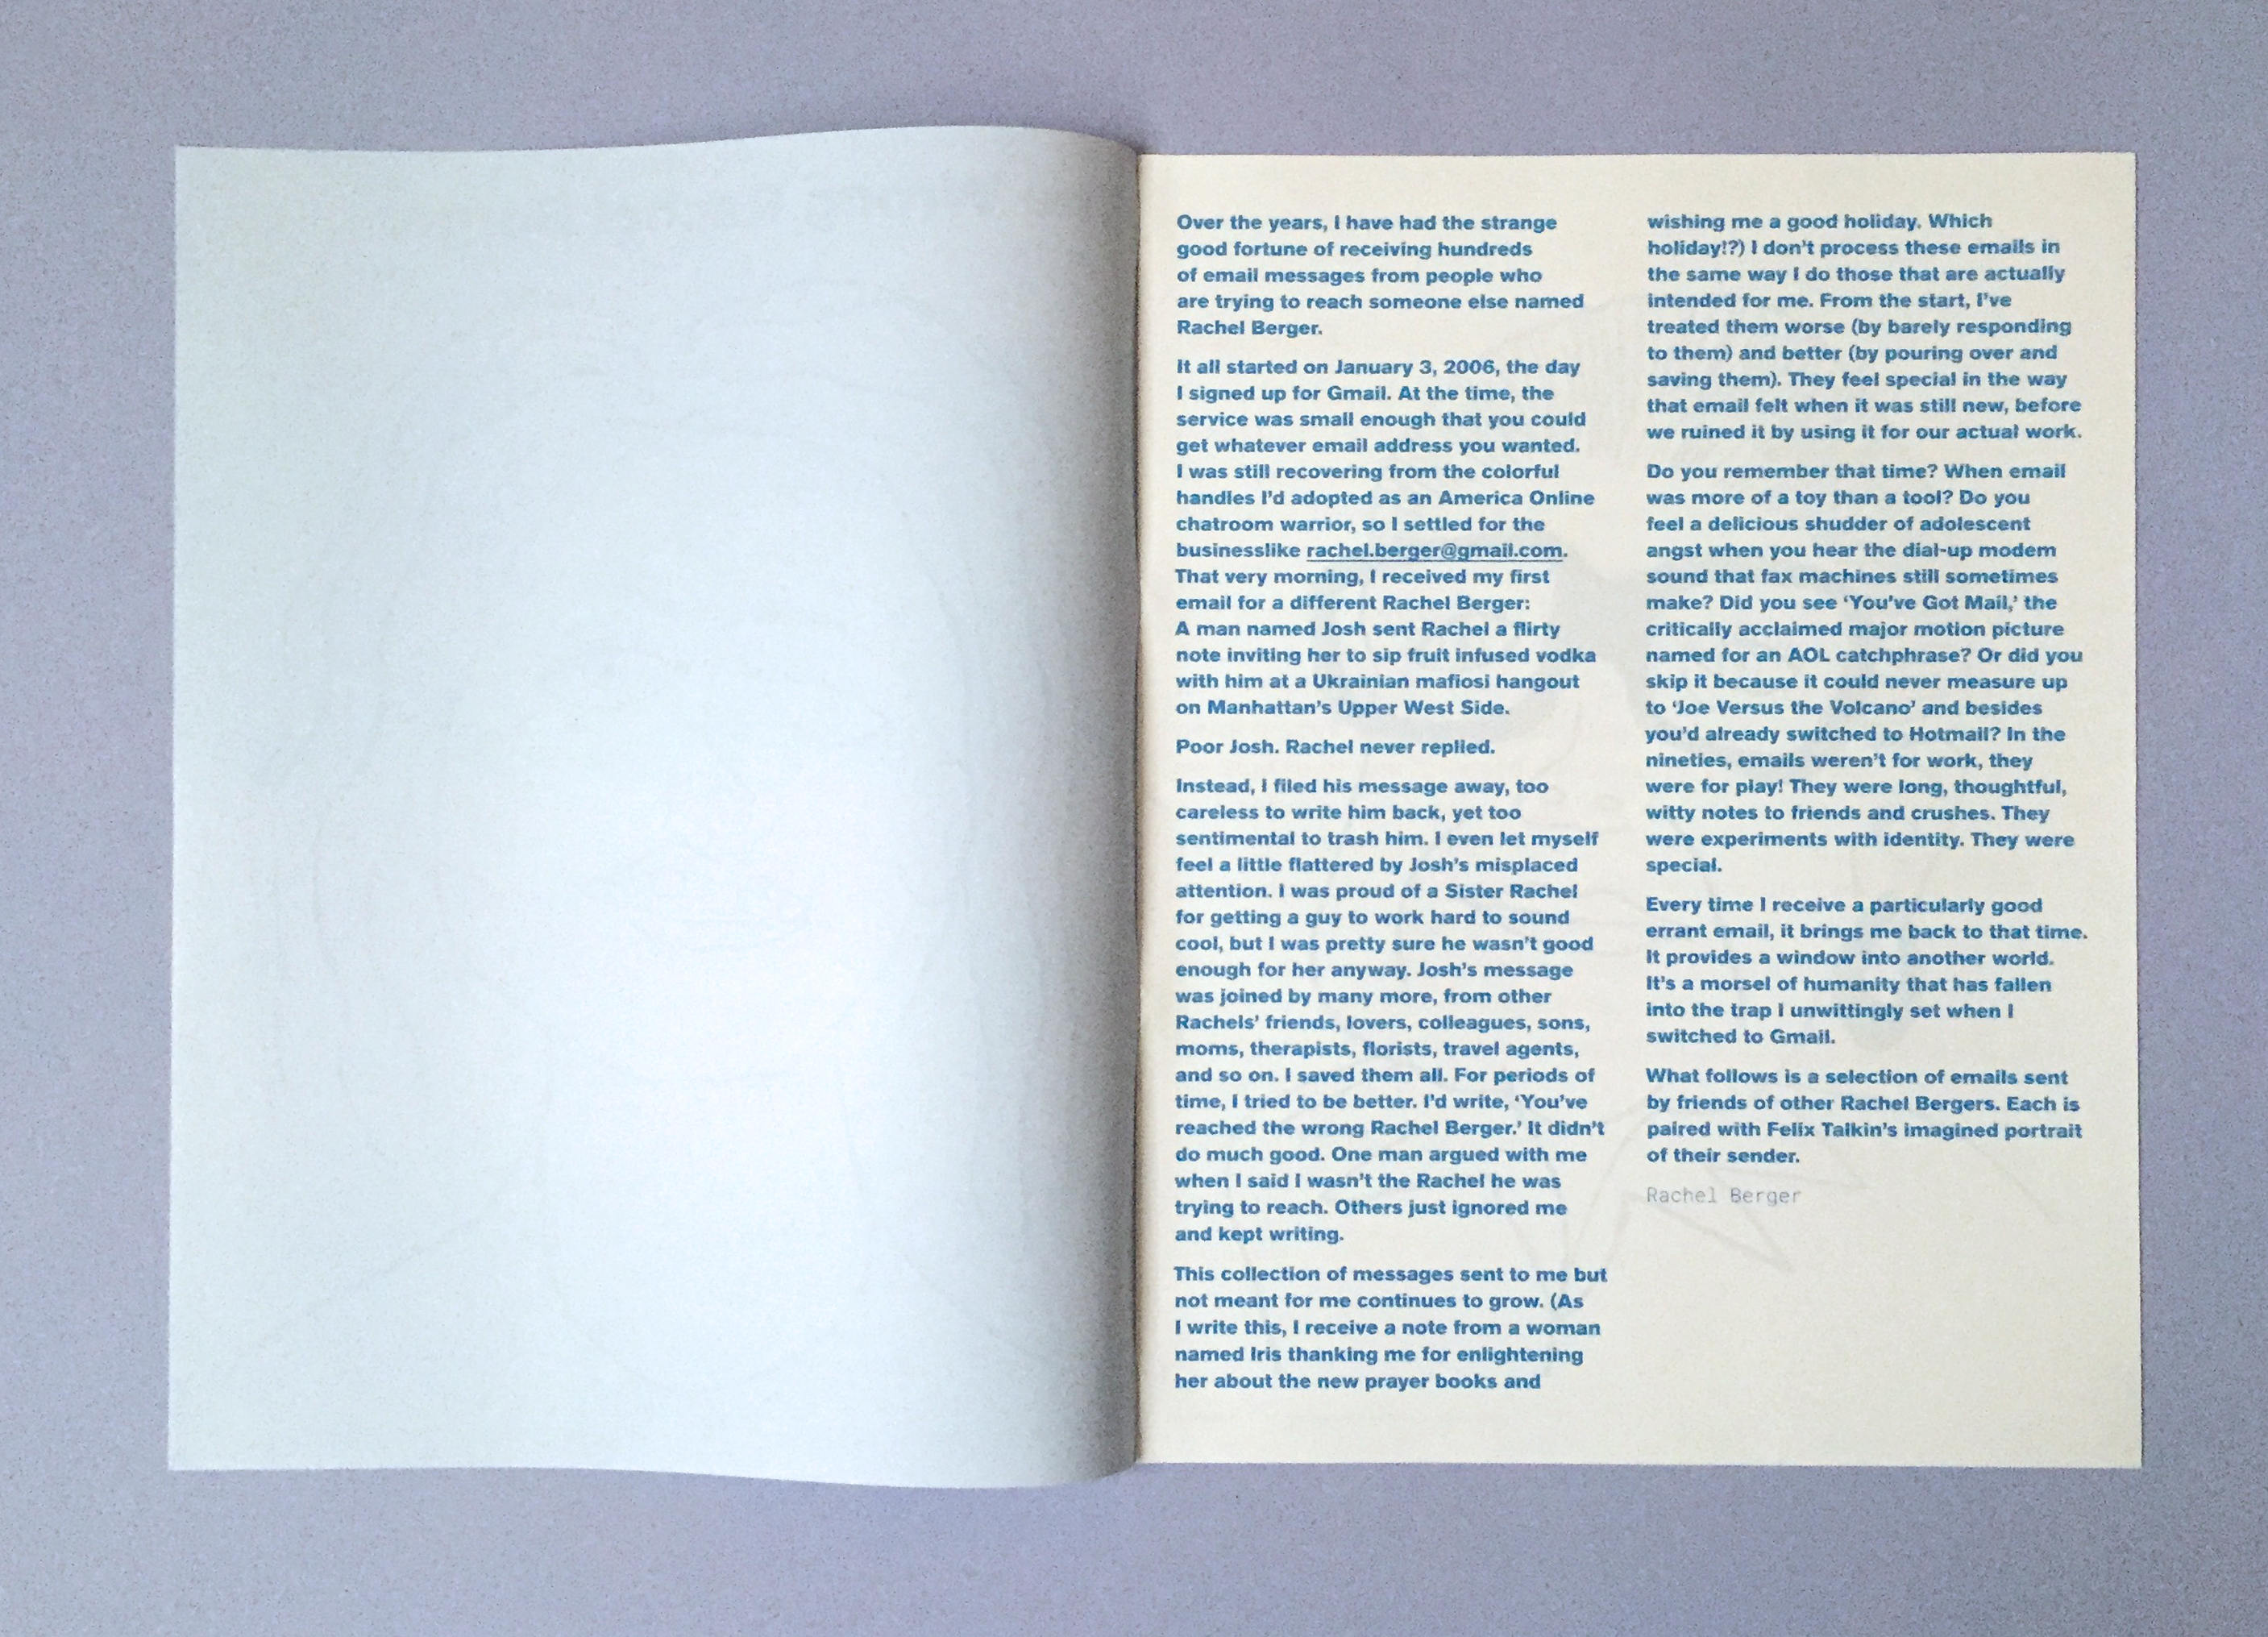 Over the years, I have had the strange
good fortune of receiving hundreds
of email messages from people who
are trying to reach someone else named
Rachel Berger.
It all started on January 3, 2006, the day
I signed up for Gmail. At the time, the
service was small enough that you could
get whatever email address you wanted.
I was still recovering from the colorful
handles I'd adopted as an America Online
chatroom warrior, so I settled for the
businesslike rachel.berger@gmail.com.
That very morning, I received my first
email for a different Rachel Berger:
A man named Josh sent Rachel a flirty
note inviting her to sip fruit infused vodka
with him at a Ukrainian mafiosi hangout
on Manhattan's Upper West Side.
Poor Josh. Rachel never replied.
Instead, I filed his message away, too
careless to write him back, yet too
sentimental to trash him. I even let myself
feel a little flattered by Josh's misplaced
attention. I was proud of a Sister Rachel
for getting a guy to work hard to sound
cool, but I was pretty sure he wasn't good
enough for her anyway. Josh's message
was joined by many more, from other
Rachels' friends, lovers, colleagues, sons,
moms, therapists, florists, travel agents,
and so on. I saved them all. For periods of
time, I tried to be better. I'd write, 'You've
reached the wrong Rachel Berger.' It didn't
do much good. One man argued with me
when I said I wasn't the Rachel he was
trying to reach. Others just ignored me
and kept writing.
This collection of messages sent to me but
not meant for me continues to grow. (As
I write this, I receive a note from a woman
named Iris thanking me for enlightening
her about the new prayer books and
wishing me a good holiday. Which
holiday!?) I don't process these emails in
the same way I do those that are actually
intended for me. From the start, I've
treated them worse (by barely responding
to them) and better (by pouring over and
saving them). They feel special in the way
that email felt when it was still new, before
we ruined it by using it for our actual work.
Do you remember that time? When email
was more of a toy than a tool? Do you
feel a delicious shudder of adolescent
angst when you hear the dial-up modem
sound that fax machines still sometimes
make? Did you see 'You've Got Mail,' the
critically acclaimed major motion picture
named for an AOL catchphrase? Or did you
skip it because it could never measure up
to 'Joe Versus the Volcano' and besides
you'd already switched to Hotmail? In the
nineties, emails weren't for work, they
were for play! They were long, thoughtful,
witty notes to friends and crushes. They
were experiments with identity. They were
special.
Every time I receive a particularly good
errant email, it brings me back to that time.
It provides a window into another world.
It's a morsel of humanity that has fallen
into the trap I unwittingly set when I
switched to Gmail.
What follows is a selection of emails sent
by friends of other Rachel Bergers. Each is
paired with Felix Talkin's imagined portrait
of their sender.
Rachel Berger